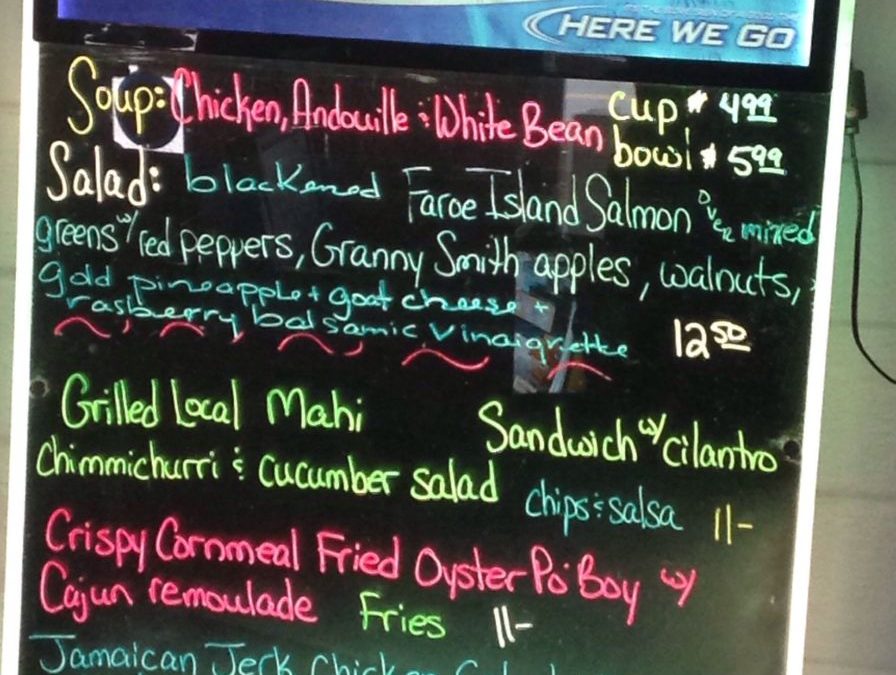 HERE WE GO
Soup: Chicken, Andouille & White Bean cup $ 4.99
bowl $ 5.99
Salad: blackened Faroe Island Salmon over mixed
greens w/ red peppers, Granny Smith apples, walnuts,
gold pineapple + goat cheese +
rasberry balsamic vinaigrette 12.50
Grilled Local Mahi Sandwich w/ cilantro
Chimmichurri & cucumber salad chips & salsa 11-
Crispy Cornmeal Fried Oyster Po' Boy w/
Cajun remoulade Fries 11-
Jamaican Jerk Chicken